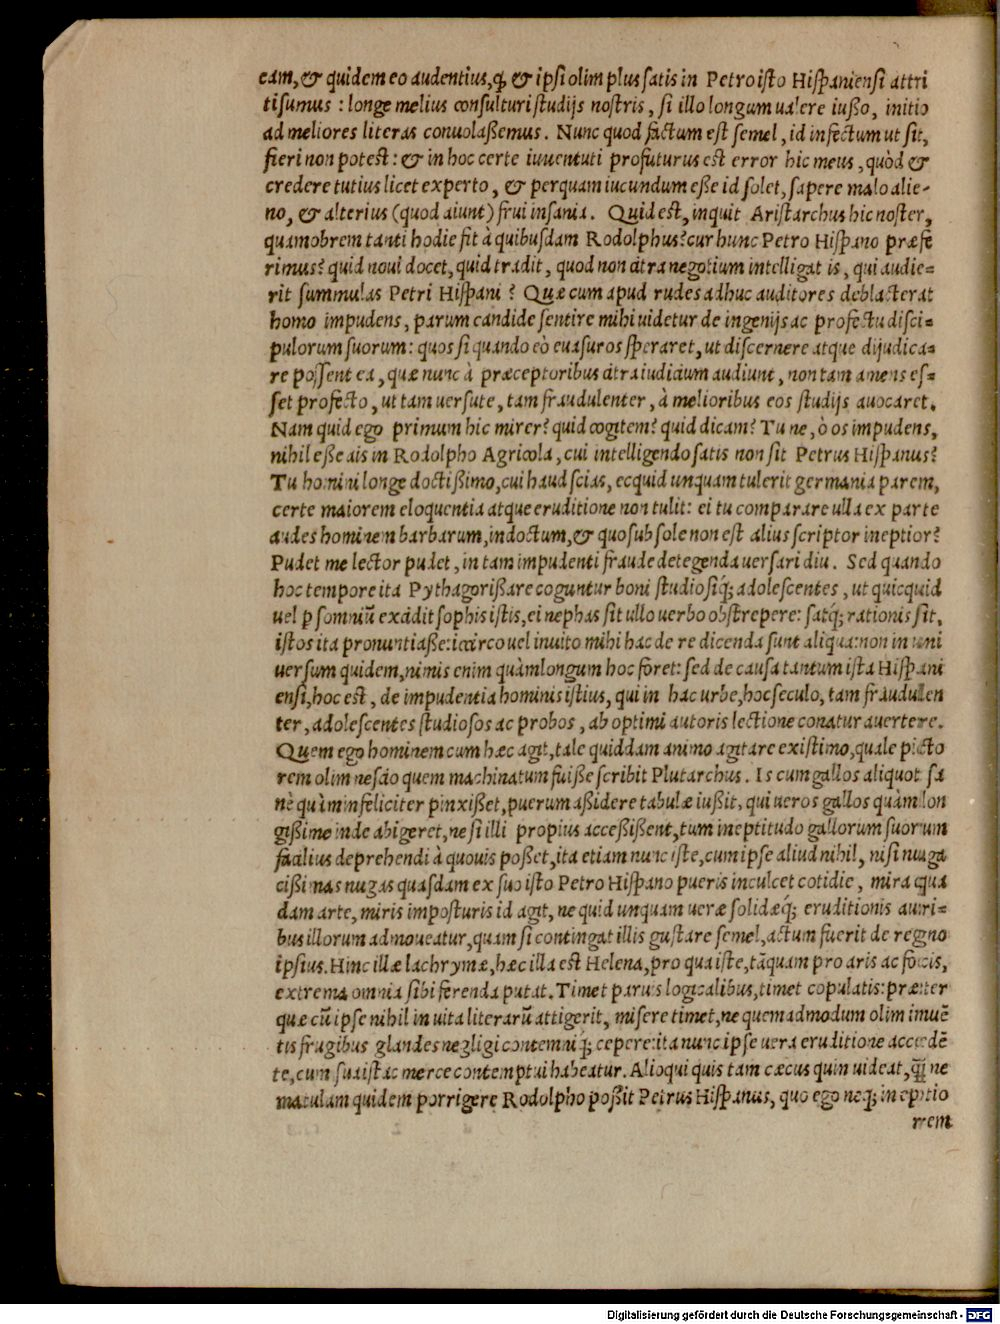 eam, & quidem eo audentius, ꝙ & ipsi olim plus satis in Petro isto Hispaniensi attri
ti sumus : longe melius consulturi studijs nostris, si illo longum ualere iußo, initio
ad meliores literas conuolaßemus. Nunc quod factum est semel, id infectum ut sit,
fieri non potest : & in hoc certe iuuentuti profuturus est error hic meus, quòd &
credere tutius licet experto, & perquam iucundum eße id solet, sapere malo alie-
no, & alterius (quod aiunt) frui insania. Quid est, inquit Aristarchus hic noster,
quamobrem tanti hodie fit à quibusdam Rodolphus? cur hunc Petro Hispano præfe
rimus? quid noui docet, quid tradit, quod non citra negotium intelligat is, qui audie=
rit summulas Petri Hispani ? Quæ cum apud rudes adhuc auditores deblacterat
homo impudens, parum candide sentire mihi uidetur de ingenijs ac profectu disci=
pulorum suorum: quos si quando eò euasuros speraret, ut discernere atque dijudica=
re possent ea, quæ nunc à præceptoribus citra iudicium audiunt, non tam amens es=
set profecto, ut tam uersute, tam fraudulenter, à melioribus eos studijs auocaret.
Nam quid ego primum hic mirer? quid cogitem? quid dicam? Tu ne, ò os impudens,
nihil eße ais in Rodolpho Agricola, cui intelligendo satis non sit Petrus Hispanus?
Tu homini longe doctißimo, cui haud scias, ecquid unquam tulerit germania parem,
certe maiorem eloquentia atque eruditione non tulit: ei tu comparare ulla ex parte
audes hominem barbarum, indoctum, & quo sub sole non est alius scriptor ineptior?
Pudet me lector pudet, in tam impudenti fraude detegenda uersari diu. Sed quando
hoc tempore ita Pythagorißare coguntur boni studiosiq́; adolescentes, ut quicquid
uel ꝑ somniũ excidit sophistis istis, ei nephas sit ullo uerbo obstrepere: satq́; rationis sit,
istos ita pronuntiaße: iccirco uel inuito mihi hac de re dicenda sunt aliqua: non in uni
uersum quidem, nimis enim quàm longum hoc foret: sed de causa tantum ista Hispani
ensi, hoc est, de impudentia hominis istius, qui in hac urbe, hoc seculo, tam fraudulen
ter, adolescentes studiosos ac probos, ab optimi autoris lectione conatur auertere.
Quem ego hominem cum hæc agit, tale quiddam animo agitare existimo, quale picto
rem olim nescio quem machinatum fuiße scribit Plutarchus. Is cum gallos aliquot sa
nè quàm infeliciter pinxißet, puerum aßidere tabulæ iußit, qui ueros gallos quàm lon
gißime inde abigeret, ne si illi propius acceßißent, tum ineptitudo gallorum suorum
facilius deprehendi à quouis poßet, ita etiam nunc iste, cum ipse aliud nihil, nisi nuga
cißimas nugas quasdam ex suo isto Petro Hispano pueris inculcet cotidie, mira qua
dam arte, miris imposturis id agit, ne quid unquam ueræ solidæq́; eruditionis auri=
bus illorum admoueatur, quam si contingat illis gustare semel, actum fuerit de regno
ipsius. Hinc illæ lachrymæ, hæc illa est Helena, pro qua iste, tãquam pro aris ac focis,
extrema omnia sibi ferenda putat. Timet paruis logicalibus, timet copulatis: præter
quæ cũ ipse nihil in uita literarũ attigerit, misere timet, ne quemadmodum olim inuẽ
tis frugibus glandes negligi contemniq́; cepere: ita nunc ipse uera eruditione accedẽ
te, cum sua istac merce contemptui habeatur. Alioqui quis tam cæcus quin uideat, ꝙ̃ ne
matulam quidem porrigere Rodolpho poßit Petrus Hispanus, quo ego neq; ineptio
rem
Digitalisierung gefördert durch die Deutsche Forschungsgemeinschaft - DFG